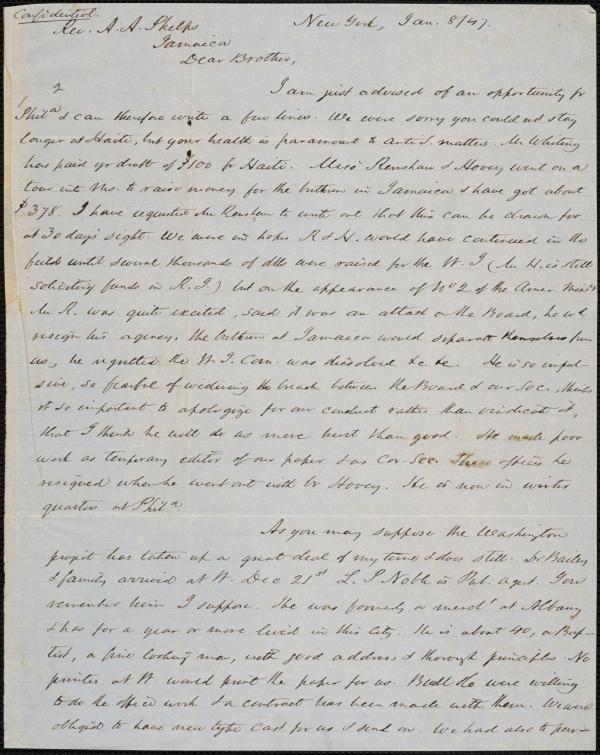 Confidential.
New York, Jan. 8/47.
Rev. A. A. Phelps
Jamaica
Dear Brother,
I am just advised of an opportunity fr
Phila & can therefore write a few lines. We were sorry you could not stay
longer at Haiti, but your health is paramount to matters. Mr Whiting
has paid yr draft of $100 for Haiti. Mess Renshaw & Hovey went on a
tour into Ms. to raise money for the brethren in Jamaica & have got about
$378. I have requested Mr Renshaw to write out that this can be drawn for
at 30 days sight. We were in hopes R & H. would have continued in the
field until several thousands of dolls were raised for the W. I (Mr H. is still
soliciting funds in R. I.) but on the appearance of No 2 of the Amer. Missy
Mr R. was quite excited, said it was an attack on the Board, he wd
resign his agency, the brethren at Jamaica would separate themselves from
us, he regretted the W. I. Com. was dissolved &c &c. He is so impul-
sive, so fearful of widening the breach between the Board & our Soc., thinks
it so important to apologize for our conduct rather than vindicate it,
that I think he will do us more hurt than good. He made poor
work as temporary editor of our paper & as Cor. Sec. These offices he
resigned when he went out with br Hovey. He is now in winter
quarters at Phila.
As you may suppose the Washington
project has taken up a great deal of my time & does still. Dr Bailey
& family arrived at W. Dec 21st L. P. Noble is Pub. agent. You
remember him I suppose. He was formerly a mercht at Albany
& has for a year or more lived in this City. He is about 40, a Bap-
tist, a fine looking man, with good address & thorough principles. No
printer at W. would print the paper for us. Buell & Co were willing
to do the office work & a contract has been made with them. We were
obliged to have new type cast for us & send on. We had also to pur-